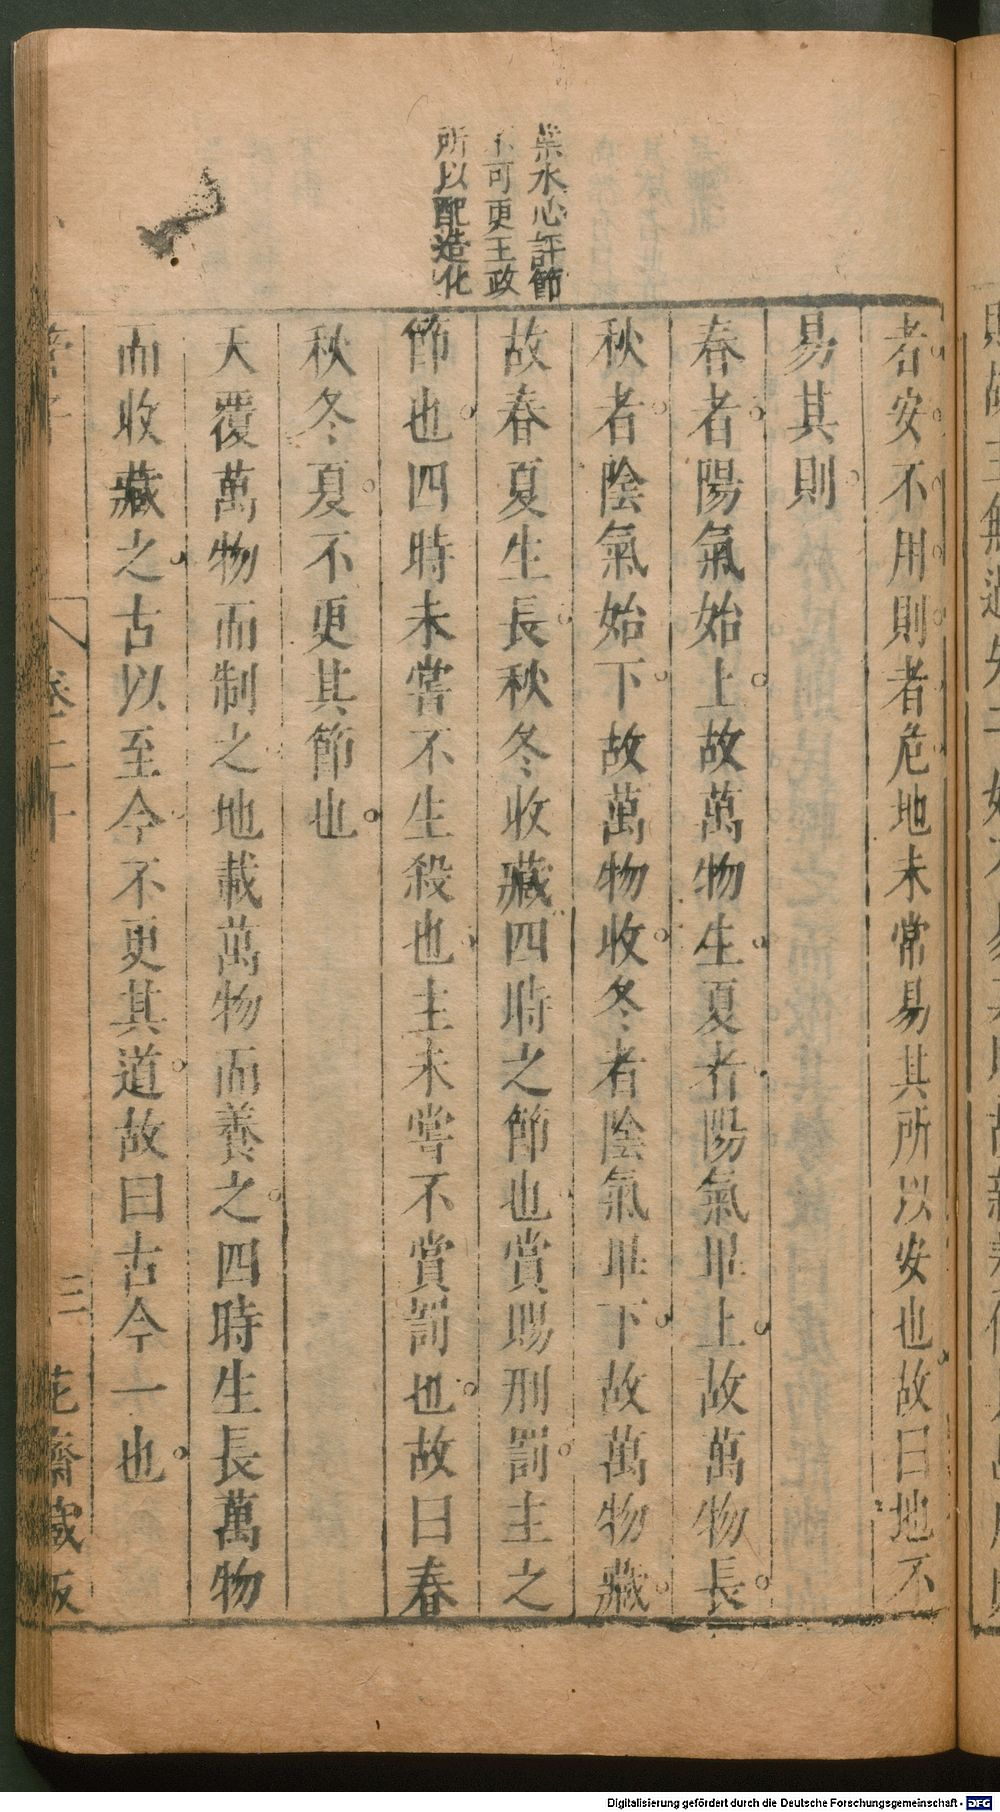 葉水心評節
不可更王政
所以配造化
者安不用則者危地未常易其所以安也故曰地不
易其則
春者陽氣始上故萬物生夏者陽氣畢上故萬物長
秋者陰氣始下故萬物收冬者陰氣畢下故萬物藏
故春夏生長秋冬收藏四時之節也賞賜刑罰主之
節也四時未嘗不生殺也主未嘗不賞罰也故曰春
秋冬夏不更其節也
天覆萬物而制之地載萬物而養之四時生長萬物
而收藏之古以至今不更其道故曰古今一也
管子
卷二十
三
花齋藏板
Digitalisierung gefördert durch die Deutsche Forschungsgemeinschaft - DFG